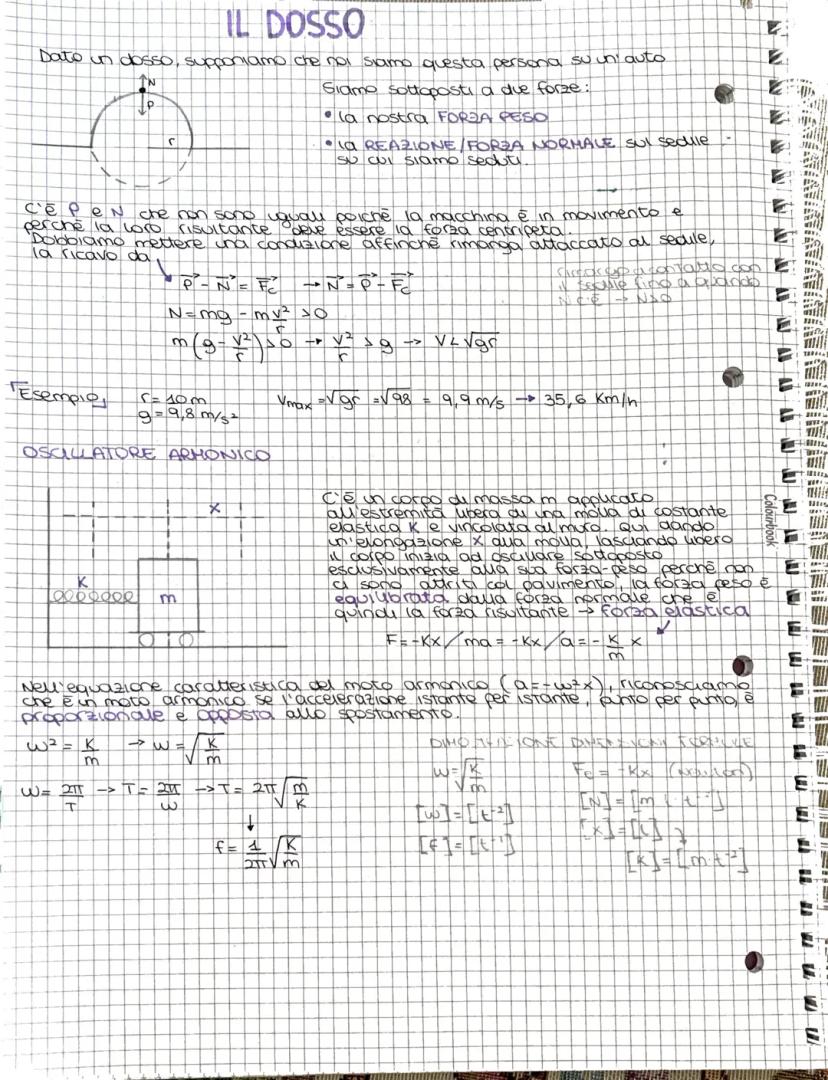 IL DOSSO
Dato un dosso, supponiamo che noi siamo questa persona su un'auto
N
P
r
Siamo sottoposti a due forze:
• la nostra FORZA PESO
• la REAZIONE/FORZA NORMALE sul sedile
su cui siamo seduti.
C'è P e N che non sono uguali poichè la macchina è in movimento e
perchè la loro risultante deve essere la forza centripeta.
Dobbiamo mettere una condizione affinchè rimanga attaccato al sedile,
la ricavo da
P⃗ - N⃗ = F⃗c → N⃗ = P⃗ - F⃗c
rimango a contatto con
il sedile fino a quando
N c'è → N>0
N = mg - m v²/r >0
m(g - v²/r) >0 → v²/r > g → V < √gr
Esempio
r = 10 m
g = 9,8 m/s²
Vmax = √gr = √98 = 9,9 m/s → 35,6 Km/h
OSCILLATORE ARMONICO
x
K
m
C'è un corpo di massa m applicato
all'estremità libera di una molla di costante
elastica K e vincolata al muro. Qui dando
un'elongazione x alla molla, lasciando libero
il corpo inizia ad oscillare sottoposto
esclusivamente alla sua forza-peso perchè non
ci sono attriti col pavimento, la forza peso è
equilibrata dalla forza normale che è
quindi la forza risultante → forza elastica
F = -Kx / ma = -Kx / a = - K/m x
Nell'equazione caratteristica del moto armonico (a = -ω²x), riconosciamo
che è un moto armonico se l'accelerazione istante per istante, punto per punto, è
proporzionale e opposta allo spostamento.
ω² = K/m → ω = √K/m
ω = 2π/T → T = 2π/ω → T = 2π √m/K
↓
f = 1/2π √K/m
DIMENSIONI FORMULE
ω = √K/m
[ω] = [t⁻²]
[f] = [t⁻¹]
Fe = -Kx
[x] = [l]
[K] = [m·t⁻²]
Colourbook